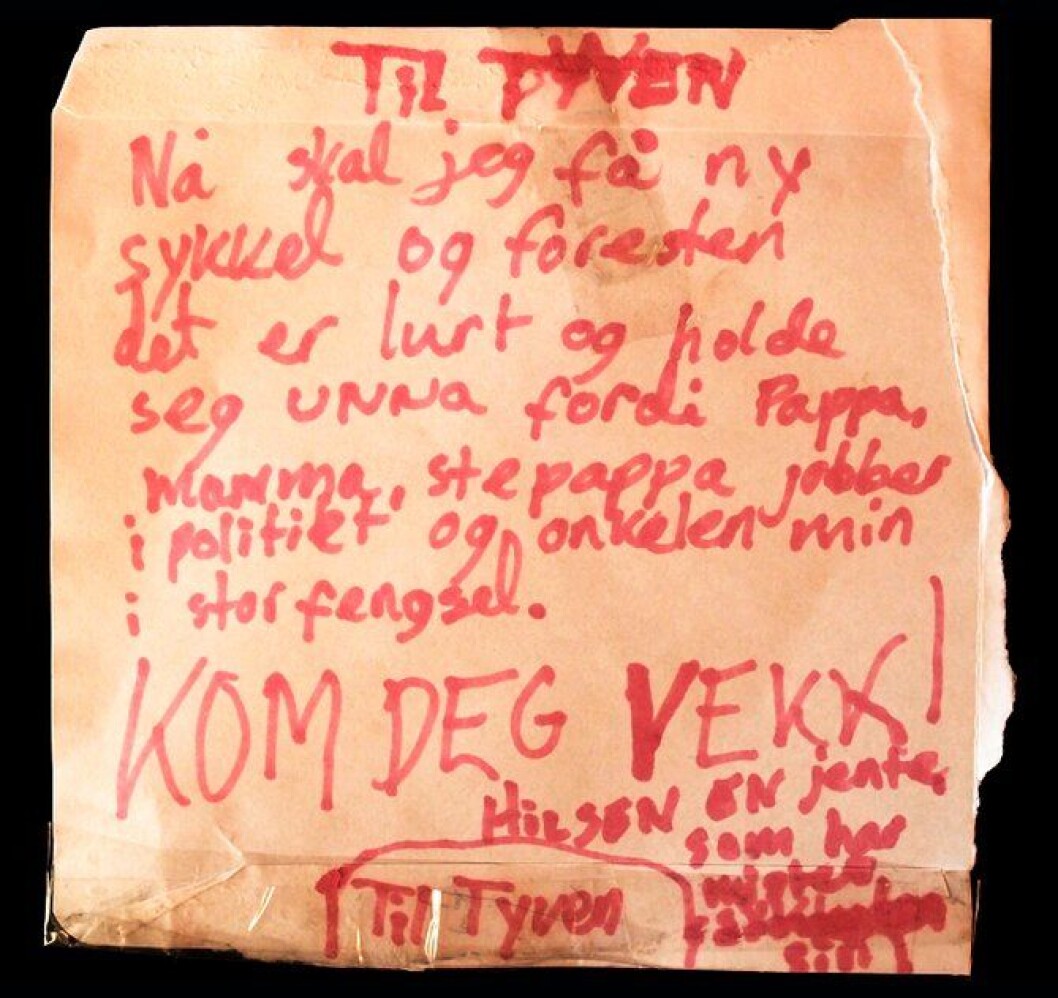 Til TyVEN
Nå skal jeg få ny
sykkel og foresten
det er lurt og holde
seg unna fordi Pappa,
mamma, stepappa jobber
i politiet og onkelen min
i stor fengsel.
KOM DEG VEKK!
HILSEN EN jente,
som har
mistet
sin
Til Tyven